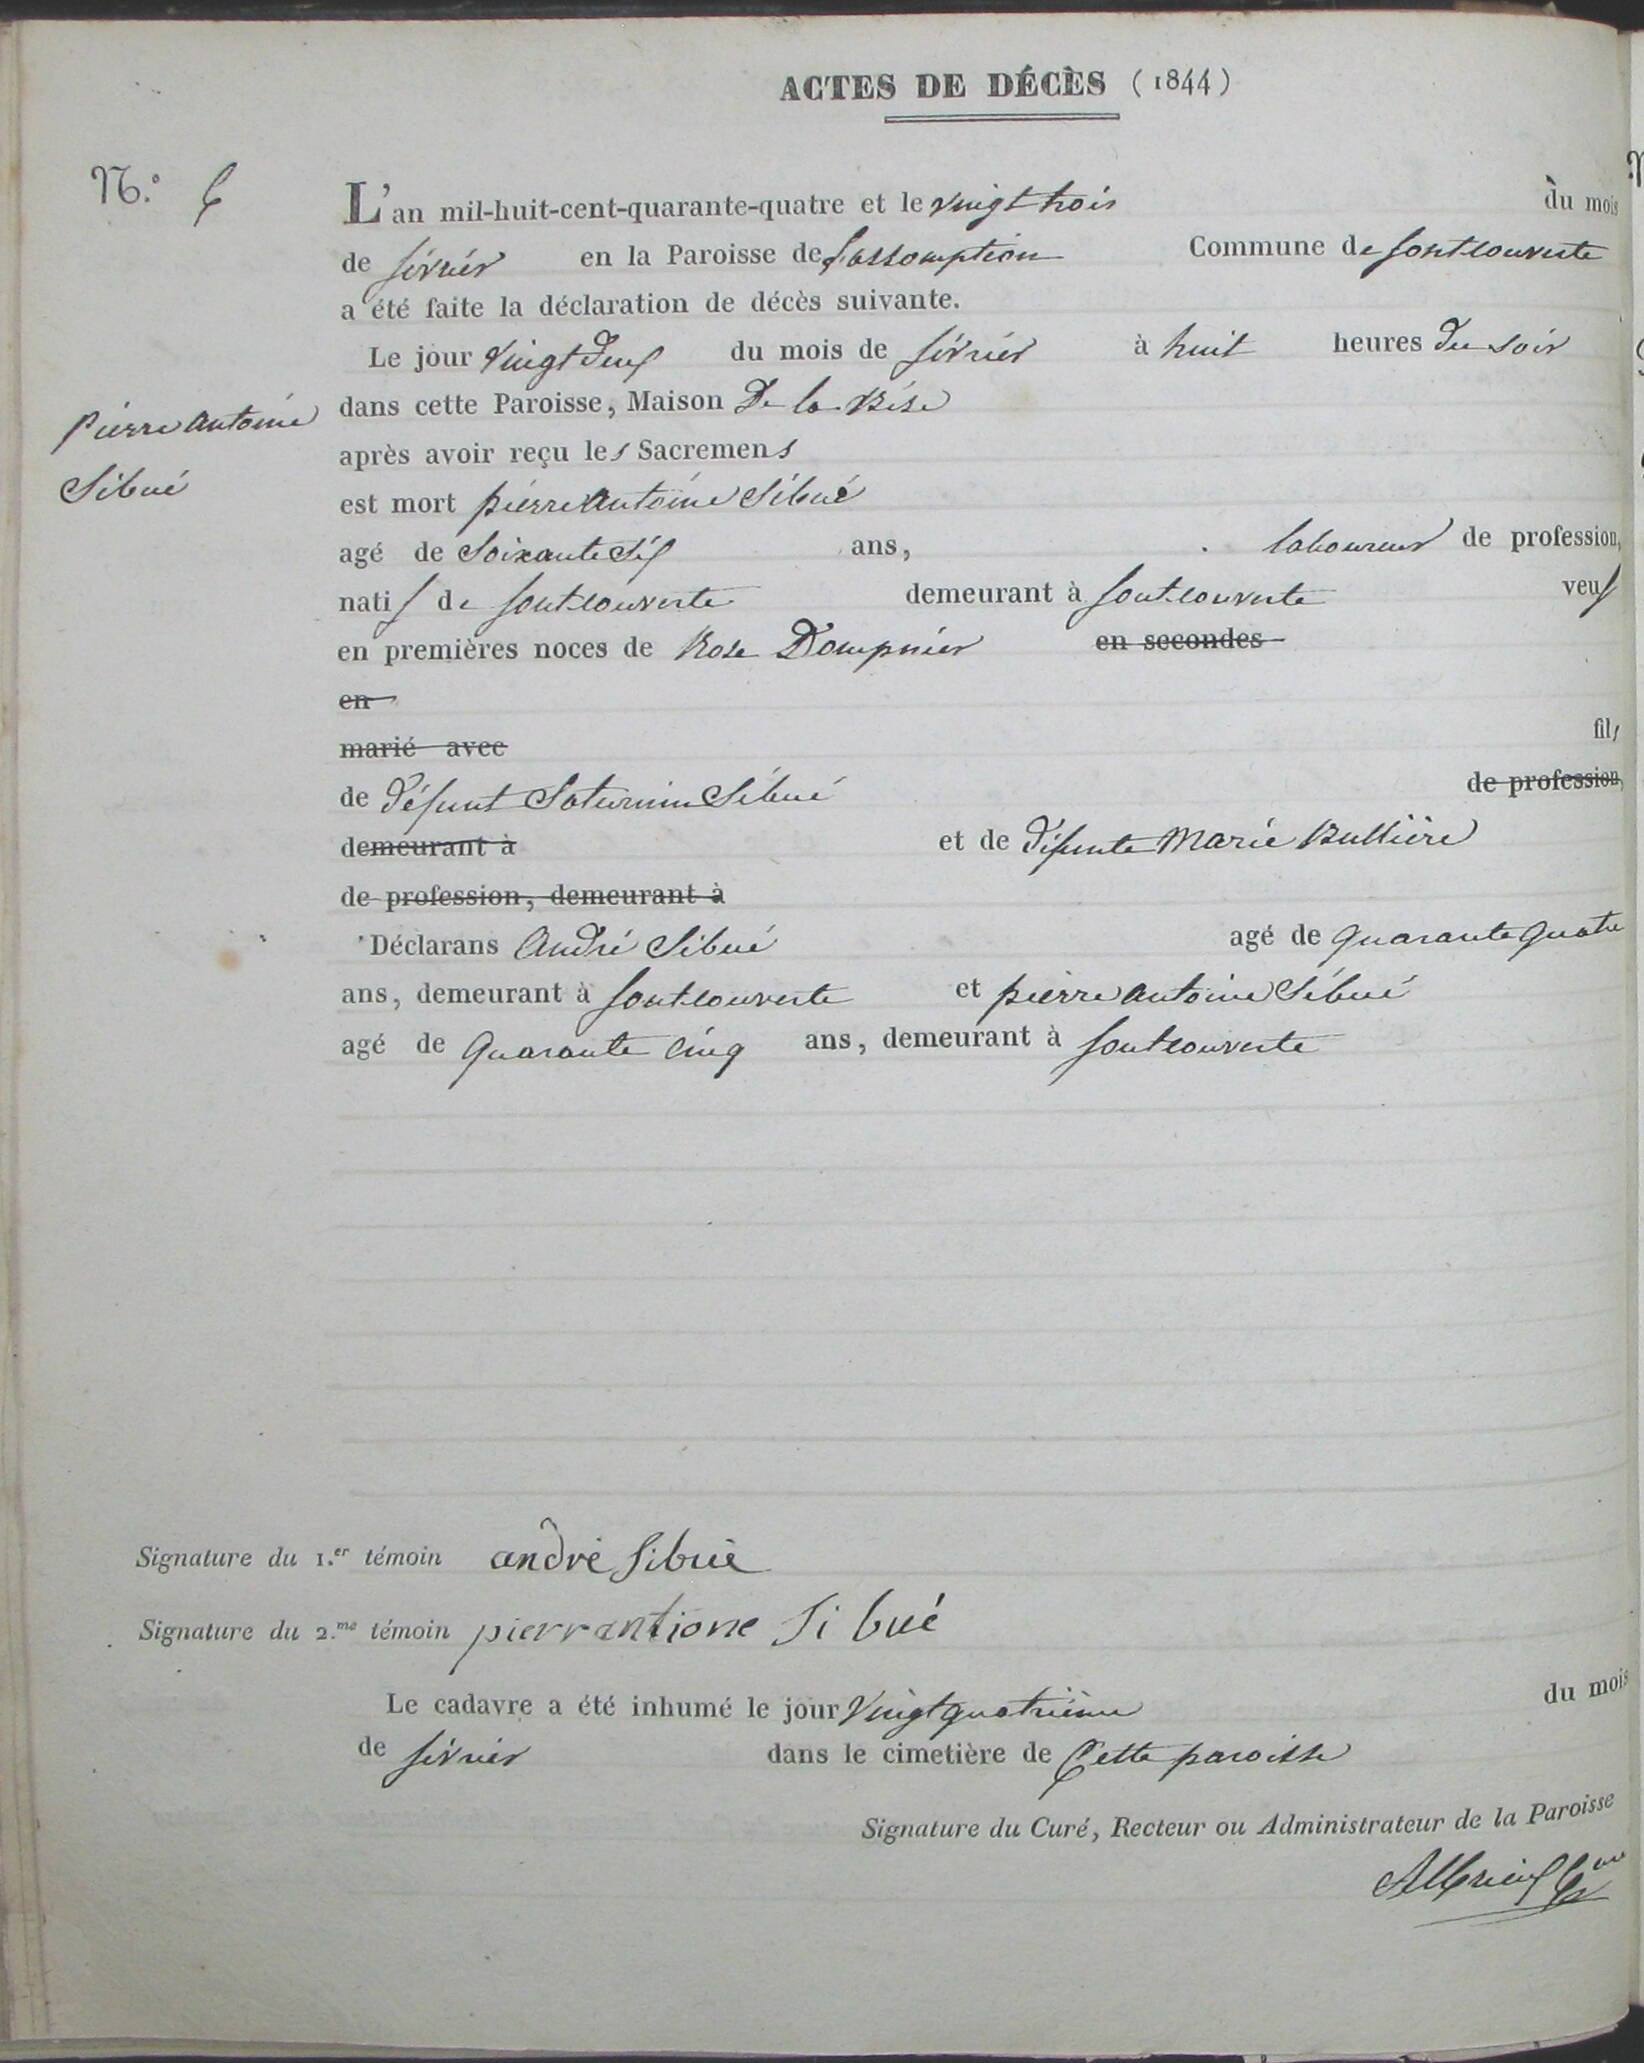 ACTES DE DÉCÈS (1844)
N.º 6
L'an mil-huit-cent-quarante-quatre et le vingt trois du mois
de février en la Paroisse de l'assomption Commune de fontcouverte
a été faite la déclaration de décès suivante.
Le jour vingt deux du mois de février à huit heures du soir
dans cette Paroisse, Maison De la Bise
après avoir reçu les Sacremens
pierre antoine
Sibué
est mort pierre Antoine Sibué
agé de Soixante Six ans, laboureur de profession,
natif de fontcouverte demeurant à fontcouverte veuf
en premières noces de Rose Dompnier en secondes
en
marié avec fils
de défunt Saturnin Sibué de profession,
demeurant à et de défunte Marie Bullière
de profession, demeurant à
Déclarans André Sibué agé de quarante quatre
ans, demeurant à fontcouverte et pierre antoine Sibué
agé de Quarante cinq ans, demeurant à fontcouverte
Signature du 1.er témoin andré Sibué
Signature du 2.me témoin pierrantione Si bué
Le cadavre a été inhumé le jour vingt quatrième du mois
de février dans le cimetière de Cette paroisse
Signature du Curé, Recteur ou Administrateur de la Paroisse